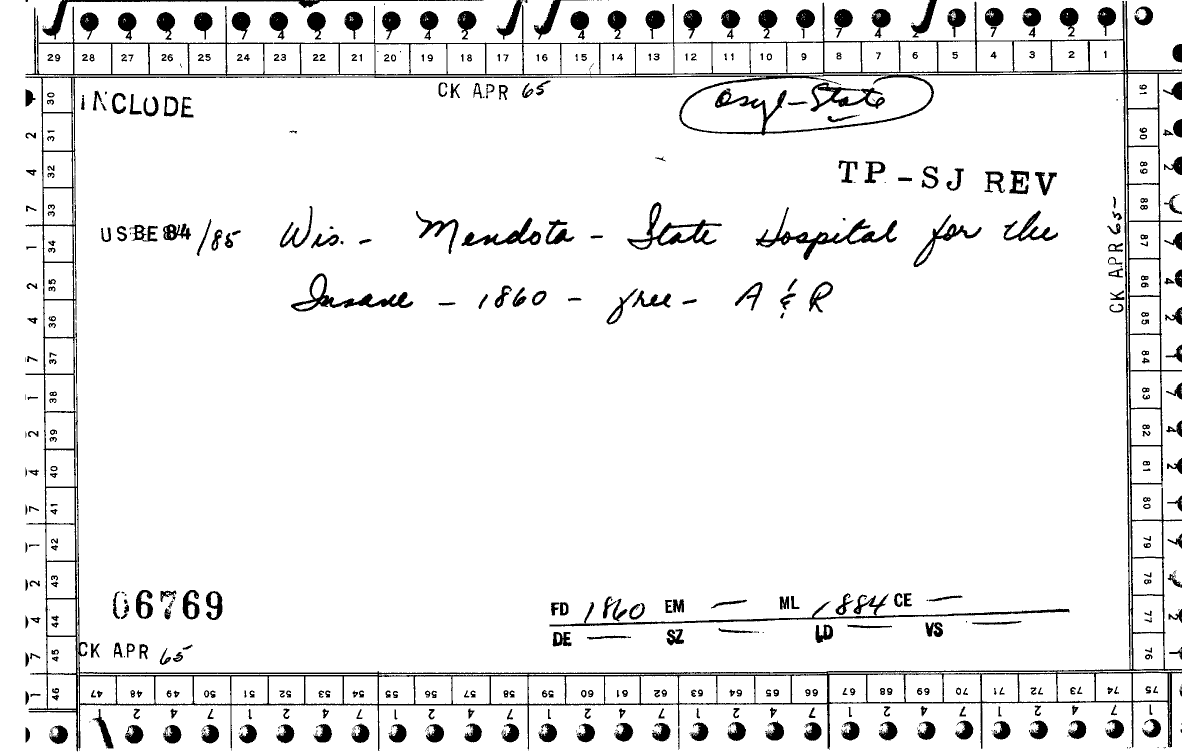 7 4 2 1 7 4 2 1 7 4 2 1 4 2 1 7 4 2 1 7 4 2 1 7 4 2 1
29 28 27 26 25 24 23 22 21 20 19 18 17 16 15 14 13 12 11 10 9 8 7 6 5 4 3 2 1
INCLUDE
CK APR 65
asyl-State
TP-SJ REV
USBE 84/85 Wis. - Mendota - State Hospital for the
Insane - 1860 - free - A & R
CK APR 65-
06769
FD 1860 EM — ML 1884 CE —
DE — SZ — LD — VS —
CK APR 65
30 31 32 33 34 35 36 37 38 39 40 41 42 43 44 45 46
91 90 89 88 87 86 85 84 83 82 81 80 79 78 77 76 75
47 48 49 50 51 52 53 54 55 56 57 58 59 60 61 62 63 64 65 66 67 68 69 70 71 72 73 74
1 2 4 7 1 2 4 7 1 2 4 7 1 2 4 7 1 2 4 7 1 2 4 7 1 2 4 7 1